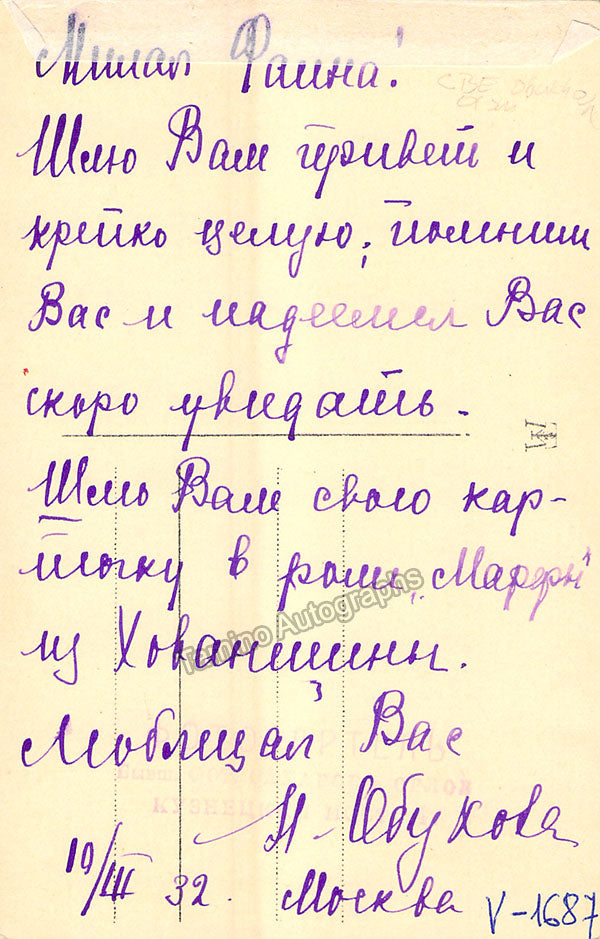 Милая Фаина!
Шлю Вам привет и
крепко целую, помним
Вас и надеемся Вас
скоро увидать.
Шлю Вам свою кар-
точку в роли „Марфы"
из Хованщины.
Любящая Вас
Н. Обухова
10/III 32. Москва
V-1687
Tamino Autographs